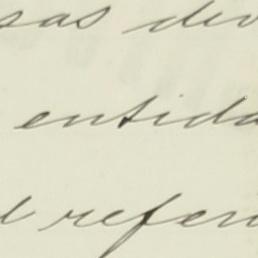 sas dev
entida
l refere